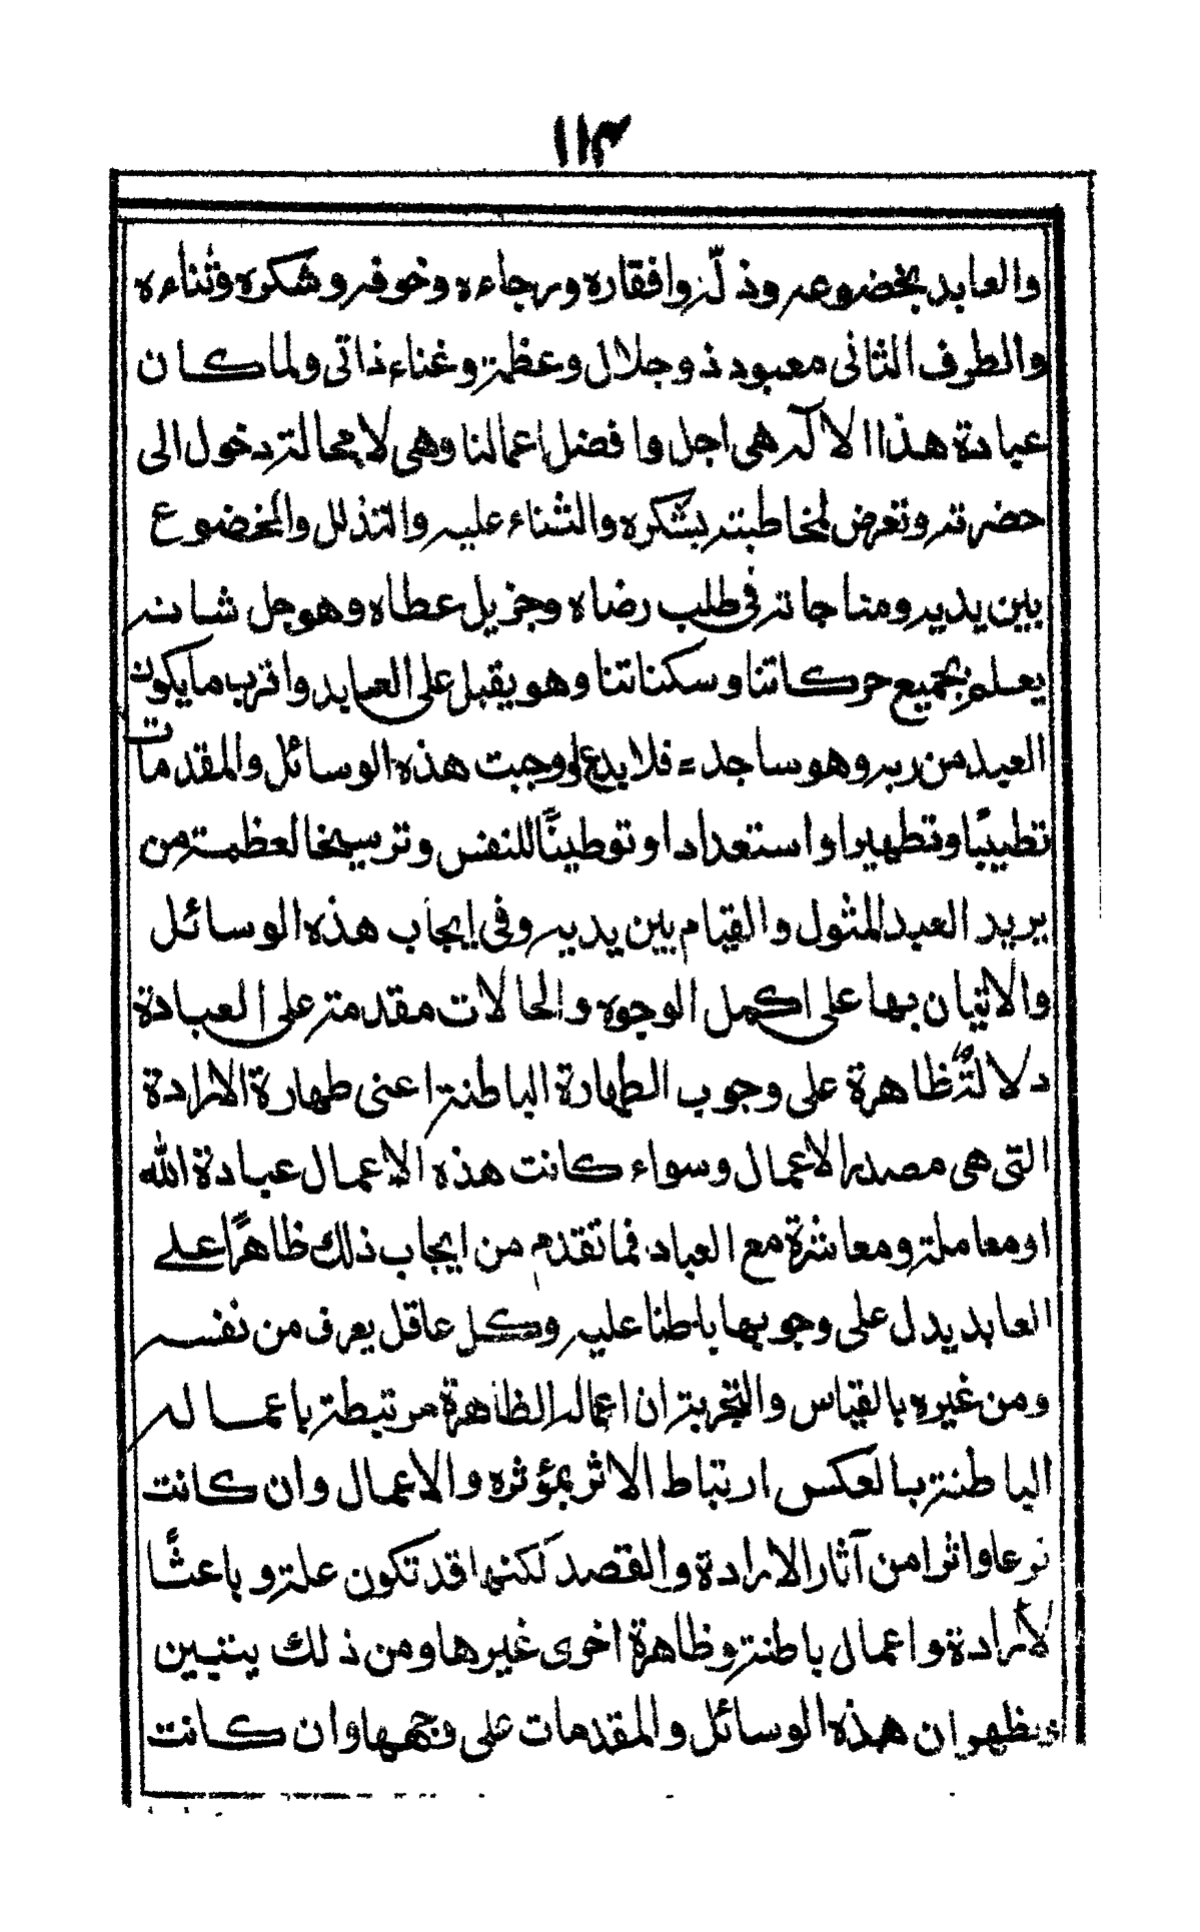 ١١٣
والعابد بخضوعه وذلّته وافقاره ورجاءه وخوفه وشكره وثناءه
والطرف الثانى معبود ذو جلال وعظمة وغناء ذاتى ولما كان
عبادة هذا الاله هى اجل وافضل اعمالنا وهى لا محالة دخول الى
حضرته وتعرض لمخاطبته بشكره والثناء عليه والتذلل والخضوع
بين يديه ومناجاته فى طلب رضاه وجزيل عطاه وهو جل شانه
يعلم بجميع حركاتنا وسكناتنا وهو يقبل على العابد واقرب ما يكون
العبد من ربه وهو ساجد = فلا يدع لو وجبت هذه الوسائل والمقدمات
تطييبًا وتطهيرا واستعدادا وتوطينًا للنفس وترسيخا لعظمة من
يريد العبد المثول والقيام بين يديه وفى ايجاب هذه الوسائل
والاتيان بها على اكمل الوجوه والحالات مقدمة على العبادة
دلالةٌ ظاهرة على وجوب الطهارة الباطنة اعنى طهارة الارادة
التى هى مصدر الاعمال وسواء كانت هذه الاعمال عبادة الله
او معاملة ومعاشرة مع العباد فما تقدم من ايجاب ذلك ظاهرًا على
العابد يدل على وجوبها باطنا عليه وكل عاقل يعرف من نفسه
ومن غيره بالقياس والتجربة ان اعماله الظاهرة مرتبطة باعماله
الباطنة بالعكس ارتباط الاثر بمؤثره والاعمال وان كانت
نوعا واثرا من آثار الارادة والقصد لكنها قد تكون علة وباعثًا
لأرادة واعمال باطنة وظاهرة اخرى غيرها ومن ذلك يتبين
ويظهر ان هذه الوسائل والمقدمات على وجهها وان كانت